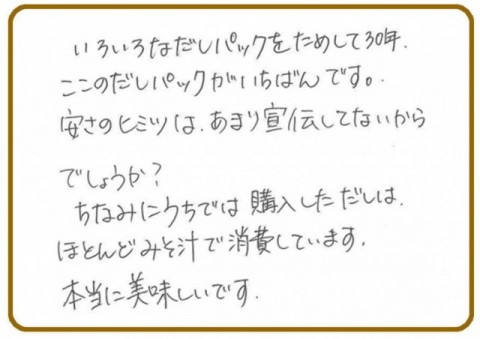 いろいろなだしパックをためして30年.
ここのだしパックがいちばんです。
安さのヒミツは、あまり宣伝してないから
でしょうか?
ちなみにうちでは購入しただしは、
ほとんどみそ汁で消費しています。
本当に美味しいです.